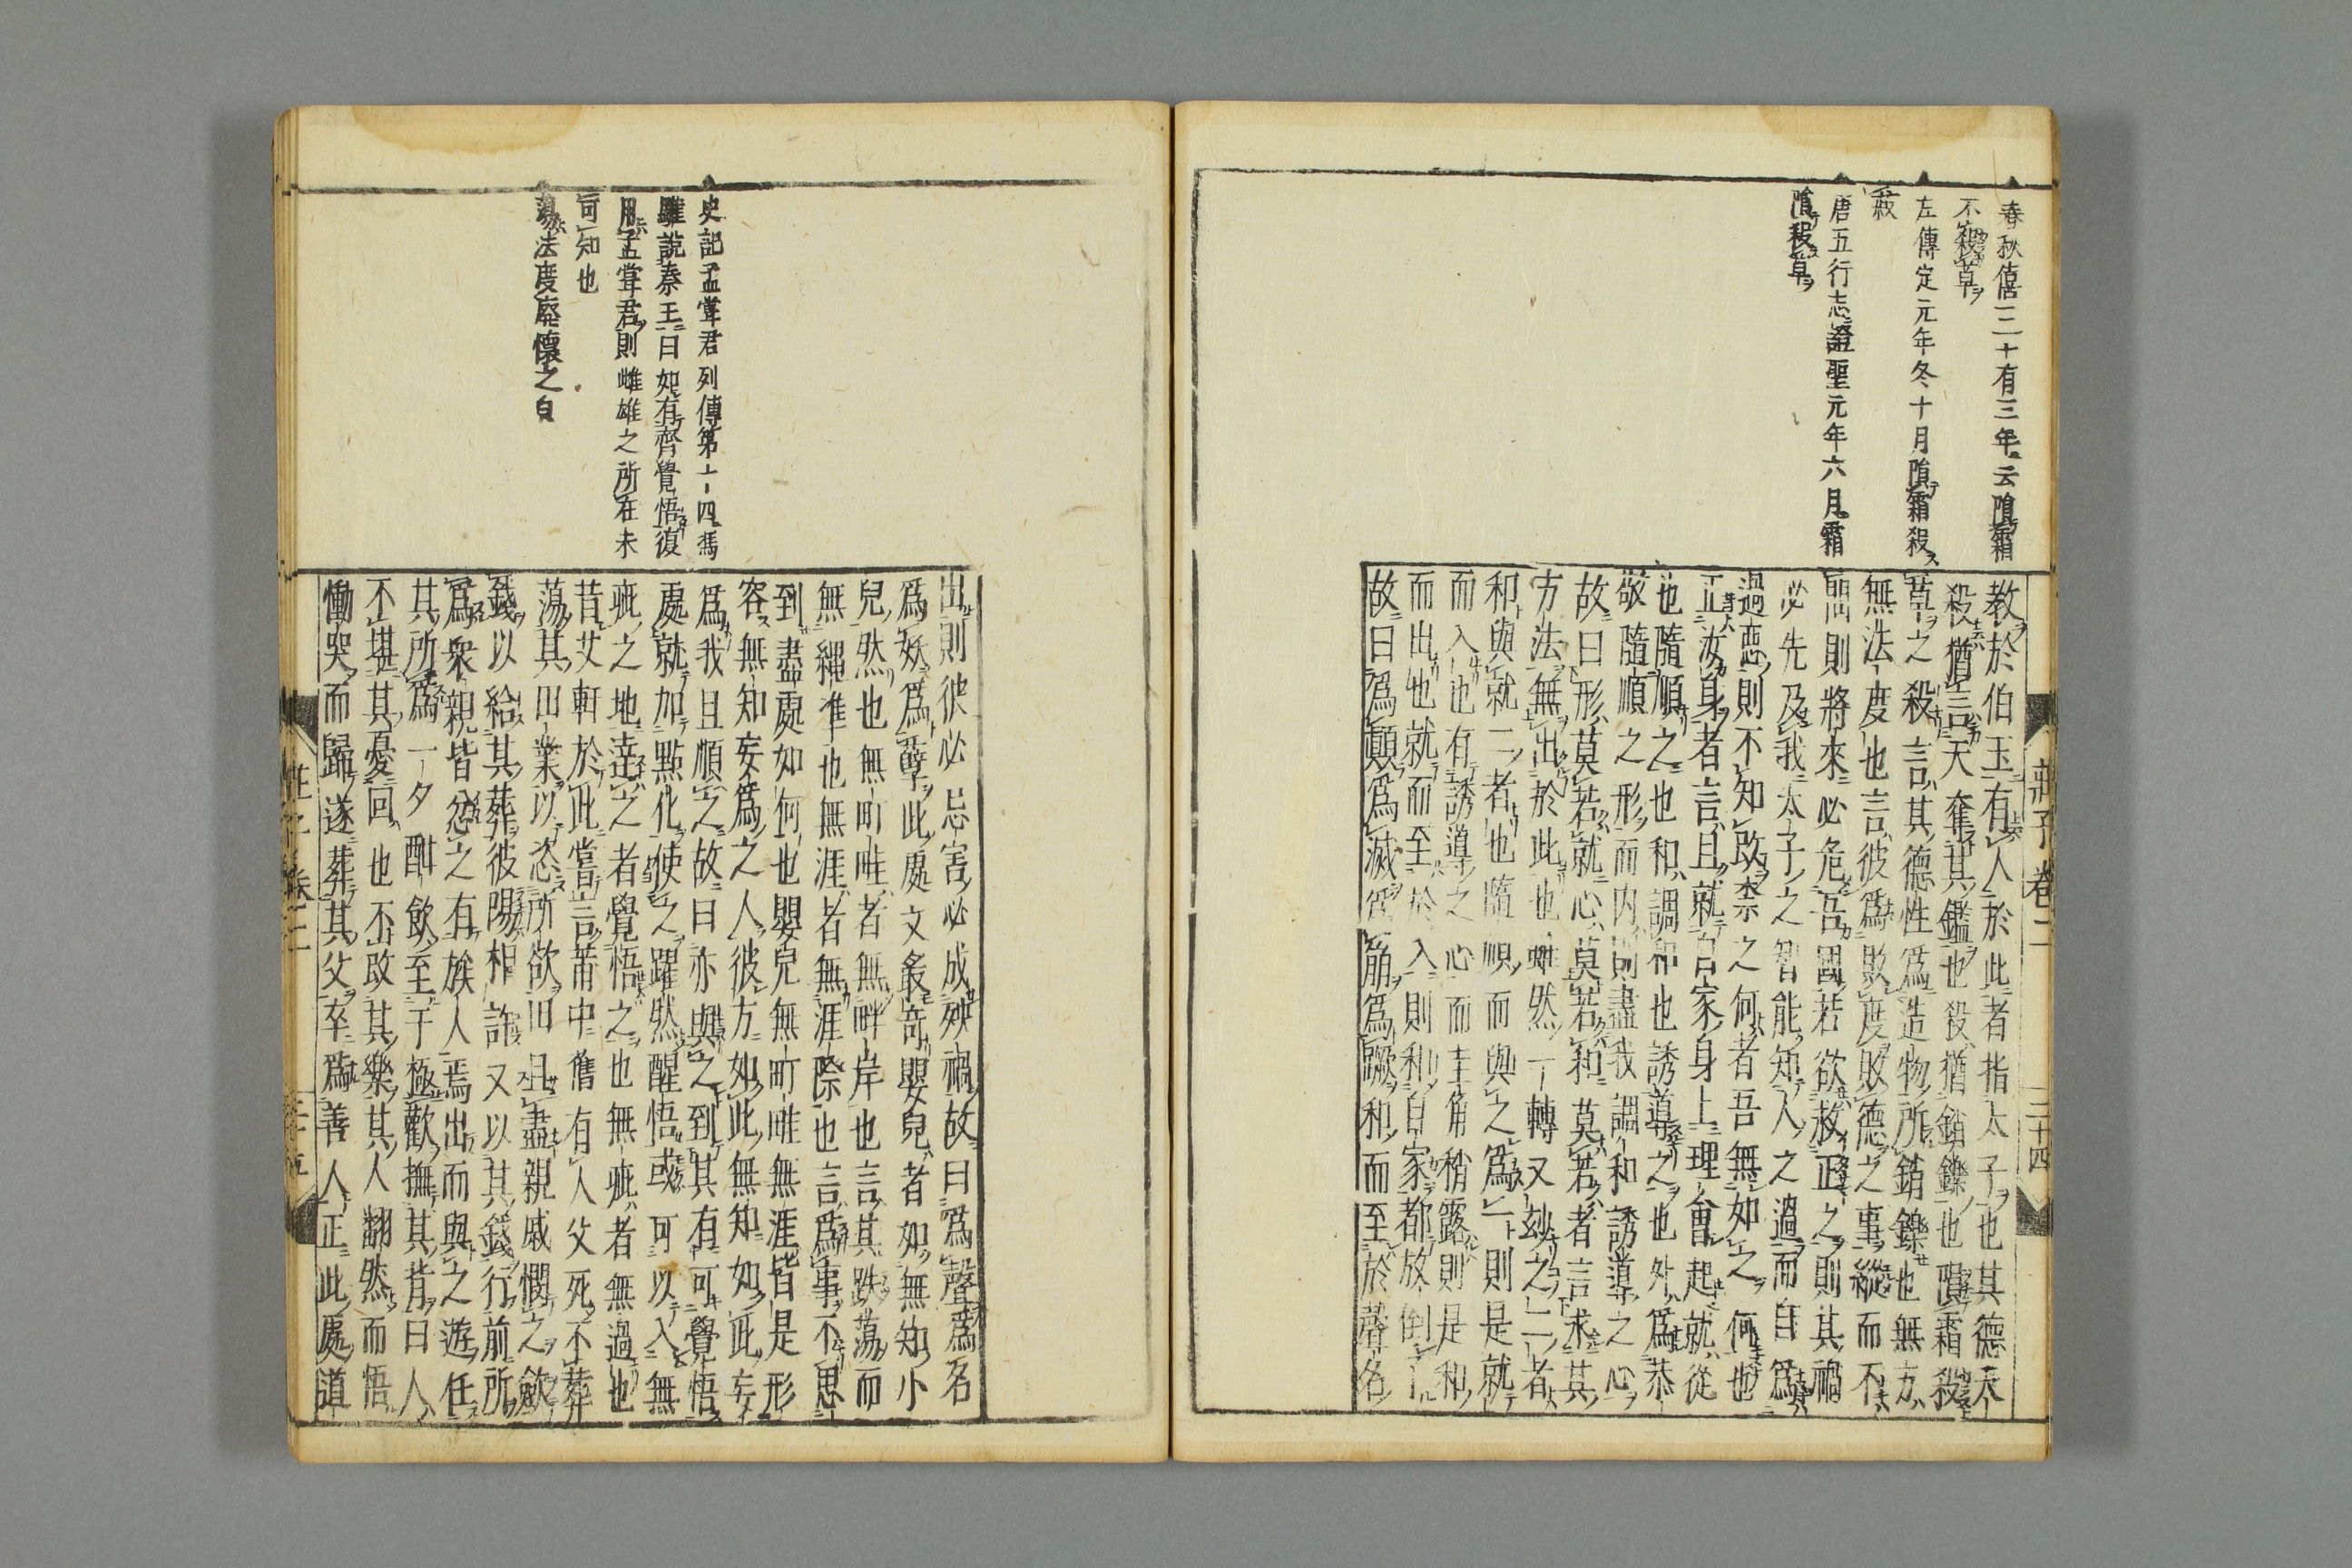 春秋僖三十有三年云隕霜
不殺草
左傳定元年冬十月隕霜殺
菽
唐五行志證聖元年六月霜
隕殺草
莊子卷二
三十四
教於伯玉有人於此者指太子也其德天
殺猶言天奪其鑑也殺猶銷鑠也隕霜殺
草之殺言其德性爲造物所銷鑠也無方
無法度也言彼爲敗度敗德之事縱而不
問則將來必危吾國若欲救正之則其禍
必先及我太子之智能知人之過而自爲
過惡則不知改禁之何者吾無如之何也
正汝身者言且就自家身上理會起就從
也隨順之也和調和也誘導之也外爲恭
敬隨順之形而内則盡我調和誘導之心
故曰形莫若就心莫若和莫若者言求其
方法無出於此也雖然一轉又妙之二者
和與就二者也隨順而與之爲一則是就
而入也有誘導之心而圭角稍露則是和
而出也就而至於入則和自家都放倒了
故曰爲顛爲滅爲崩爲蹶和而至於聲名
史記孟嘗君列傳第十四馮
驩說秦王曰如有齊覺悟復
用孟嘗君則雌雄之所在未
可知也
蕩法度廢壞之皃
出則彼必忌害必成殃禍故曰爲聲爲名
爲妖爲孽此處文最奇嬰兒者如無知小
兒然也無町畦者無畔岸也言其跌蕩而
無繩準也無涯者無涯際也言爲事不思
到盡處如何也嬰兒無町畦無涯皆是形
容無知妄爲之人彼方如此無知如此妄
爲我且順之故曰亦與之到其有可覺悟
處就加點化使之躍然醒悟或可以入無
疵之地達之者覺悟之也無疵者無過也
昔艾軒於此嘗言莆中舊有人父死不葬
蕩其田業以恣所欲旧且盡親戚憫之斂
錢以給其葬彼陽相許又以其錢行前所
爲衆親皆忿之有族人焉出而與之遊任
其所爲一夕酣飲至于極歡撫其背曰人
不堪其憂回也不改其樂其人翻然而悟
慟哭而歸遂葬其父卒爲善人正此處道
莊子卷二
三十五